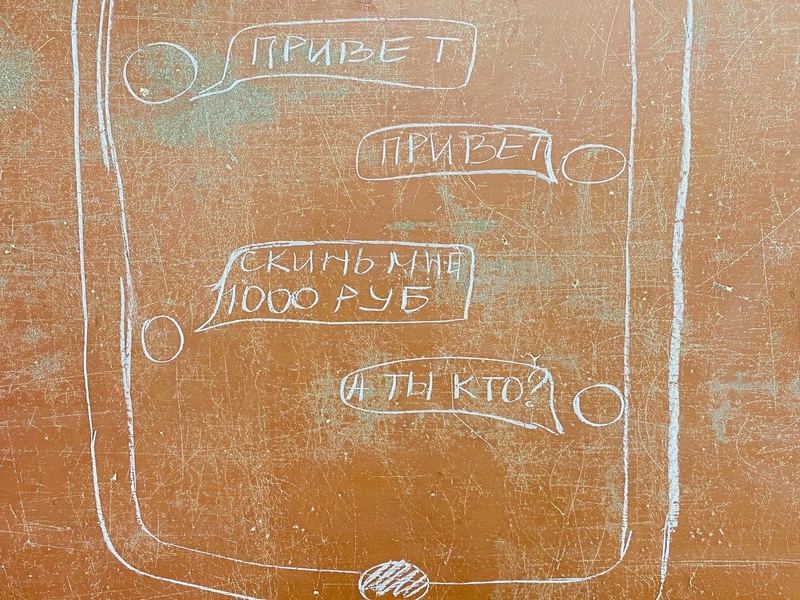 ПРИВЕТ
ПРИВЕТ
СКИНЬ МНЕ
1000 РУБ
А ТЫ КТО?